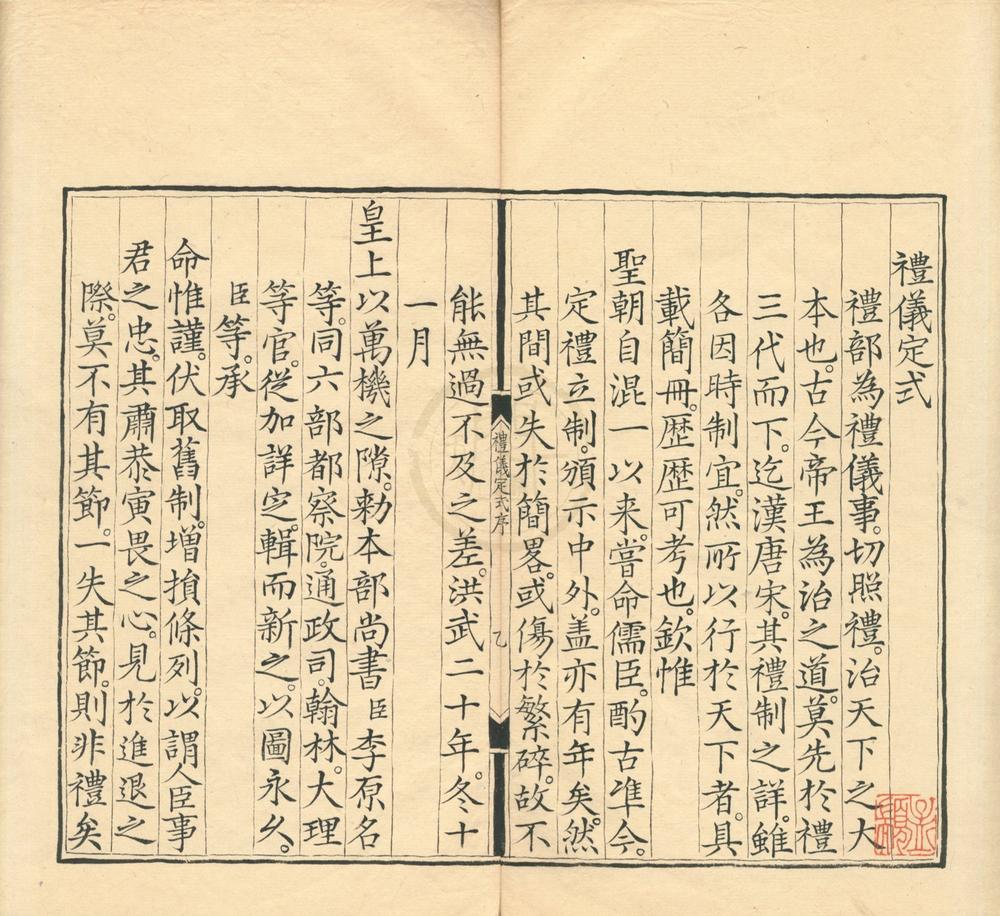 禮儀定式
禮部為禮儀事。切照禮。治天下之大
本也。古今帝王為治之道。莫先於禮
三代而下。迄漢唐宋。其禮制之詳。雖
各因時制宜。然所以行於天下者。具
載簡冊。歷歷可考也。欽惟
聖朝自混一以来。嘗命儒臣。酌古準今。
定禮立制。頒示中外。盖亦有年矣。然
其間或失於簡畧。或傷於繁碎。故不
禮儀定式序
乙
能無過不及之差。洪武二十年。冬十
一月
皇上以萬機之隙。勅本部尚書臣李原名
等。同六部都察院。通政司。翰林。大理
等官。從加詳定。輯而新之。以圖永久。
臣等。承
命惟謹。伏取舊制。增損條列。以謂人臣事
君之忠。其肅恭寅畏之心。見於進退之
際。莫不有其節。一失其節。則非禮矣